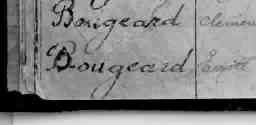 Bougeard Clemen
Bougeard